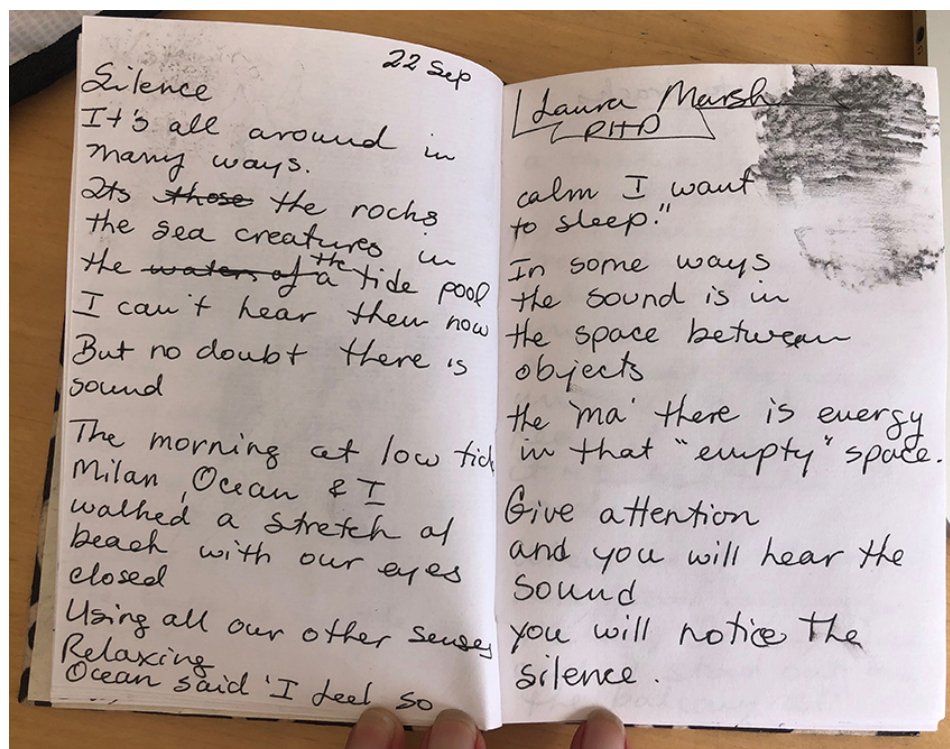 22 Sep
Silence
It's all around in
many ways.
Its ~~those~~ the rocks
the sea creatures in
the ~~waters of a~~ the tide pool
I can't hear them now
But no doubt there is
sound
The morning at low tide
Milan, Ocean & I
walked a stretch of
beach with our eyes
closed
Using all our other senses
Relaxing
Ocean said 'I feel so
Laura Marsh
PHD
calm I want
to sleep."
In some ways
the sound is in
the space between
objects
the 'ma' there is energy
in that "empty" space.
Give attention
and you will hear the
sound
you will notice the
silence.